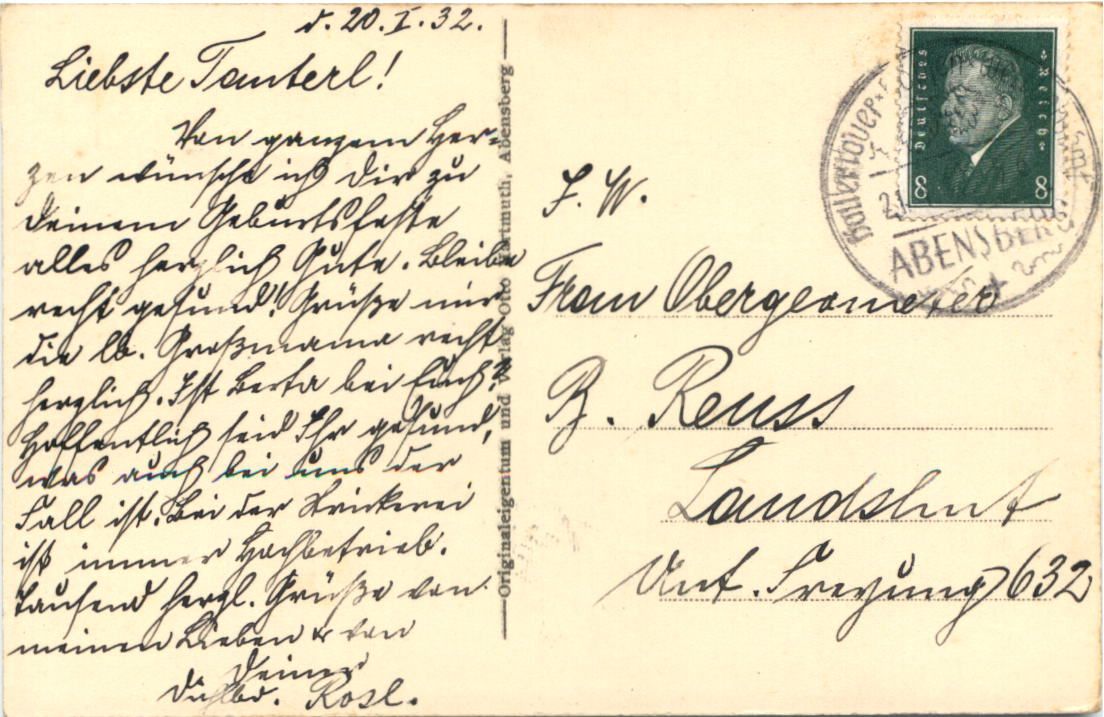 d. 20.I.32.
Liebste Tanterl!
Von ganzem Her-
zen wünsche ich Dir zu
Deinem Geburtsfeste
alles herzlich Gute. Bleibe
recht gesund! Grüße mir
die lb. Großmama recht
herzlich. Ist Berta bei Euch?
Hoffentlich seid Ihr gesund,
was auch bei uns der
Fall ist. Bei der Strickerei
ist immer Hochbetrieb.
Tausend herzl. Grüße von
meinen Lieben & von
Deiner
Rosl.
Originaleigentum und Verlag Otto Hartmuth, Abensberg
Deutsches Reich
8 8
ABENSBERG
F. W.
Frau Obergeometer
B. Reuss
Landshut
Unt. Freyung 632